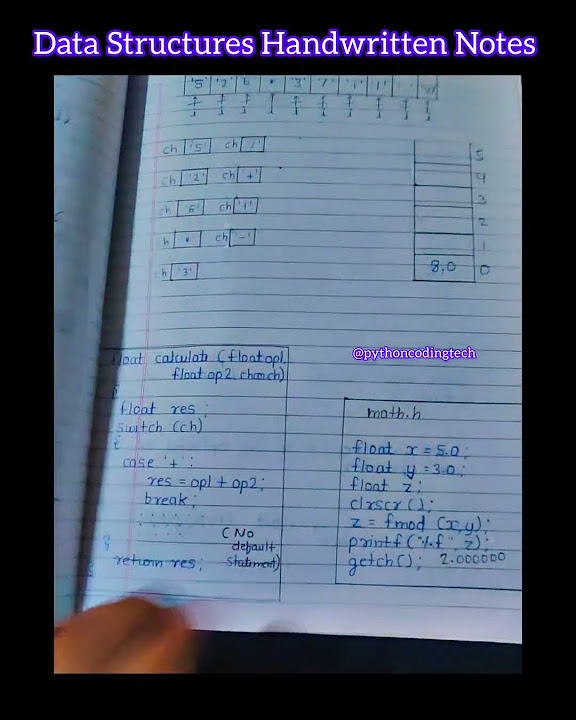 Data Structures Handwritten Notes
'5' '2' 6 * '3' 7
ch '5' ch '/'
ch '2' ch '+'
ch '6' ch '1'
h * ch '-'
ch '3'
5
4
3
2
1
8.0 0
@pythoncodingtech
float calculate (float op1,
float op2, char ch)
{
float res;
switch (ch)
{
case '+':
res = op1 + op2;
break;
(No
default
} statement)
return res;
}
math.h
float x = 5.0;
float y = 3.0;
float z;
clrscr();
z = fmod (x,y);
printf("%f", z);
getch(); 2.000000